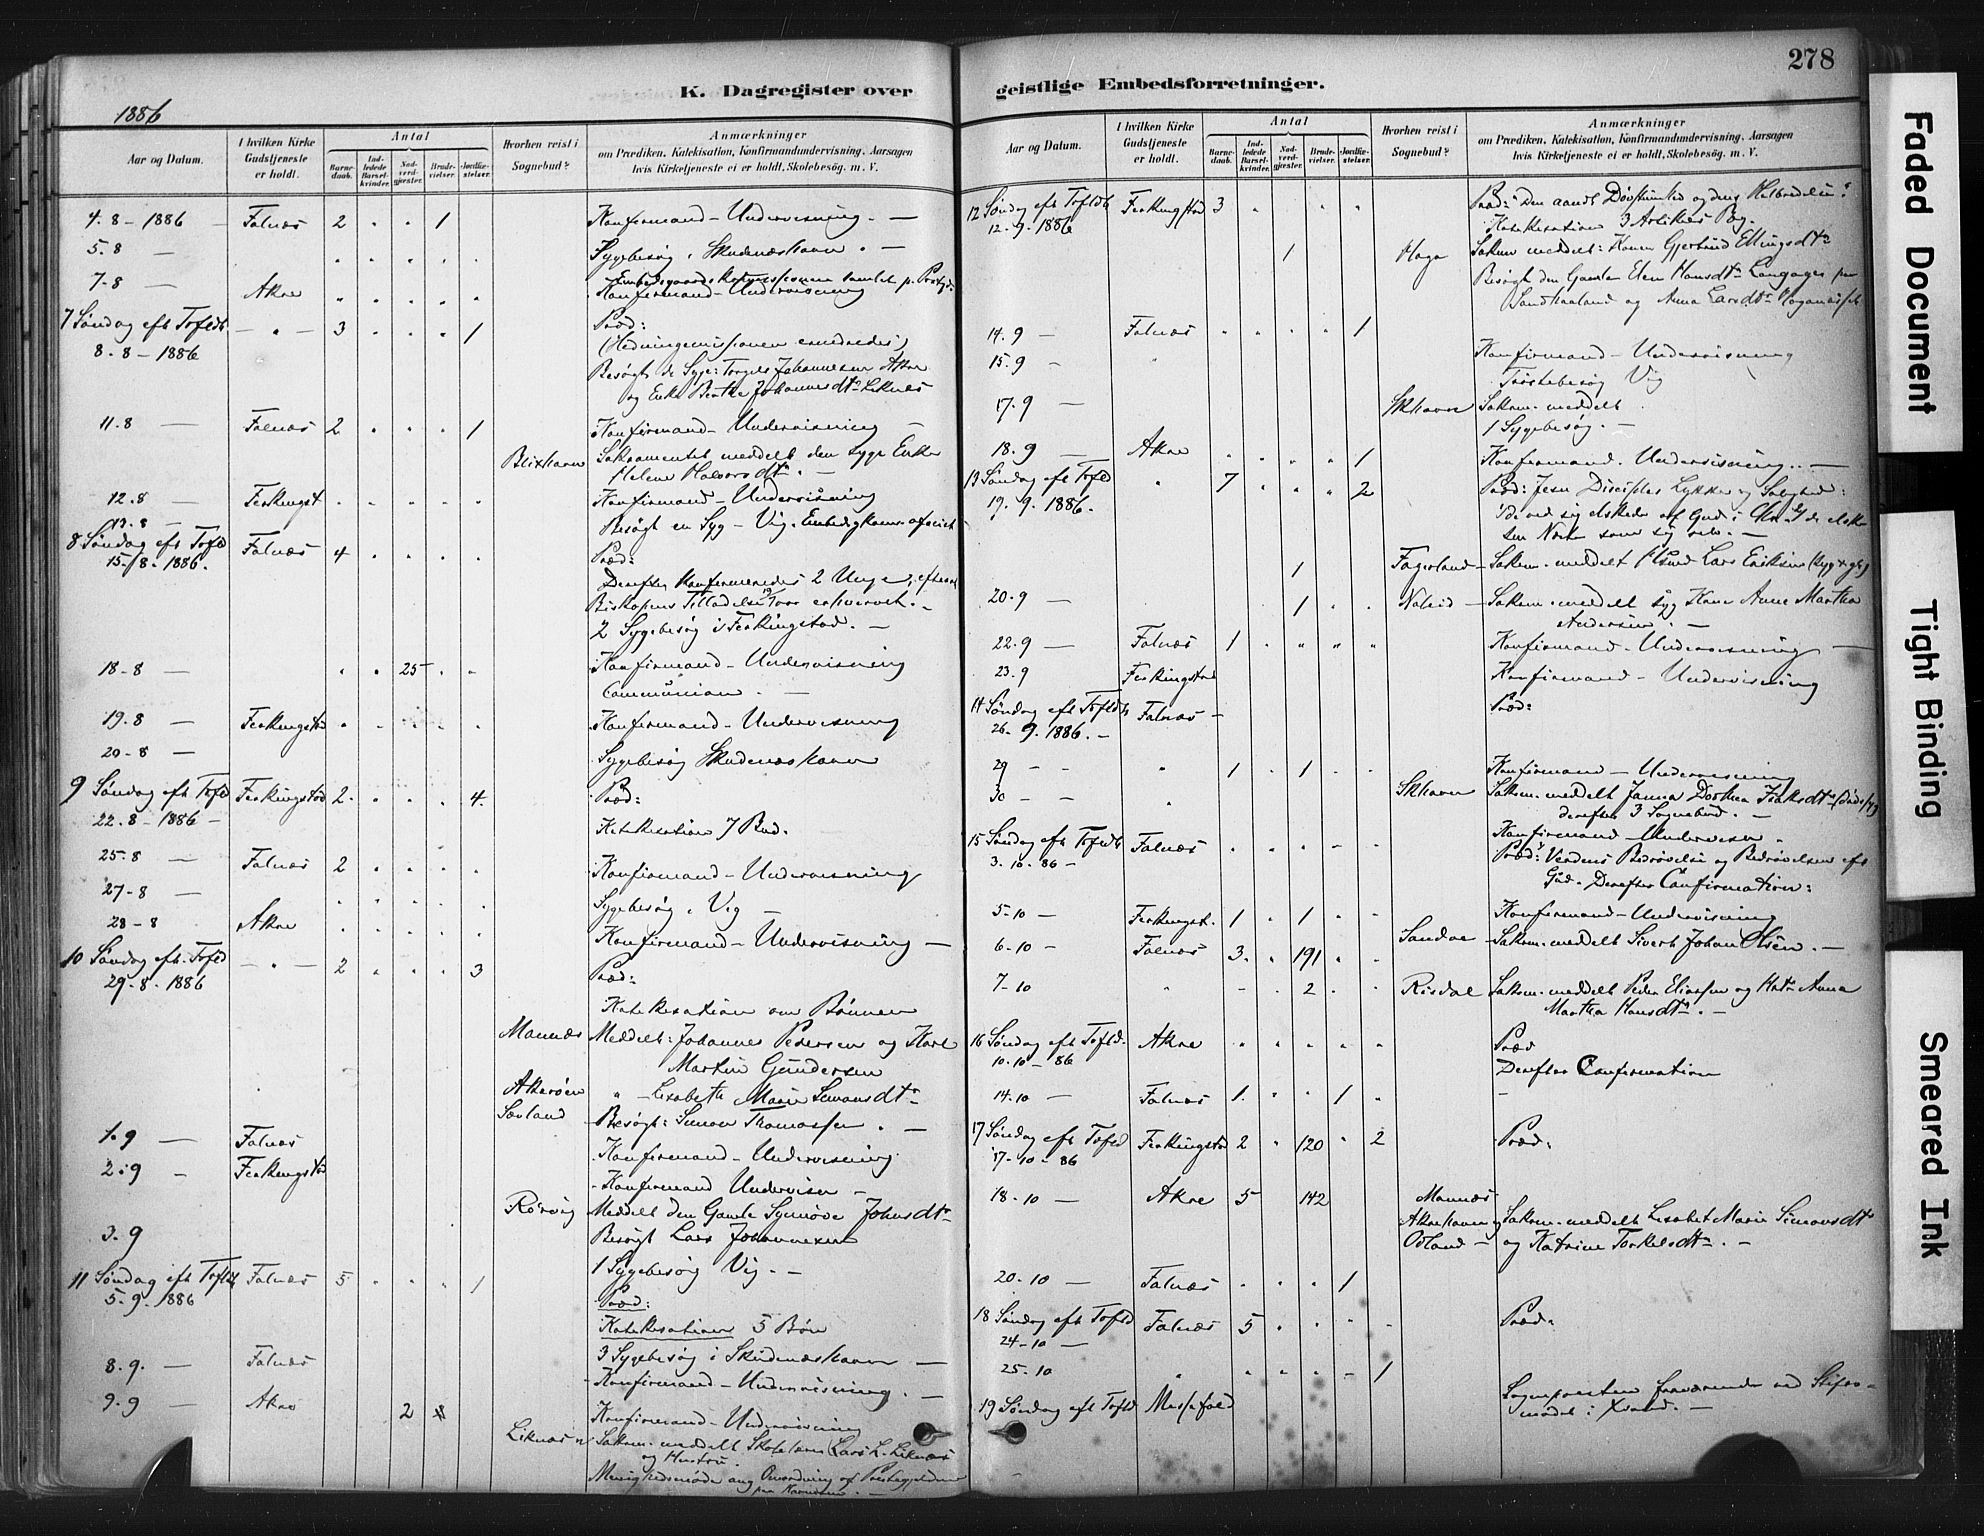 278
K. Dagregister over
geistlige Embedsforretninger.
1886
Aar og Datum.
I hvilken Kirke Gudstjeneste er holdt.
Antal
Barnedaab.
Indledede Barselkvinder.
Nadverdgjester.
Brudevielser.
Jordfæstelser.
Hvorhen reist i Sognebud?
Anmærkninger
om Prædiken, Katekisation, Konfirmandundervisning, Aarsagen
hvis Kirketjeneste ei er holdt, Skolebesög. m. V.
4. 8 - 1886 Falnæs 2 " " 1 Konfirmand - Undervisning. —
5. 8 — Sygebesøg, Skudenæshavn. —
7 - 8 — Akre
Konfirmand - Undervisning
7 Søndag eft Trefldh — " — 3 " " " 1 Præd:
8. 8 - 1886 (Hedningemissionen
Besøgt de Syge: Johannesen Akre
og Enke Berthe Johannesdtr Liknæs
11. 8 — Falnæs 2 " " " 1 Konfirmand - Undervisning —
Blixhavn Sakramentet meddelt den syge Enke
Helene Halvorsdtr. —
12. 8 — Ferkingst Konfirmand - Undervisning
13. 8 — Besøgt en Syg - Vig.
8 Søndag eft Trefld Falnæs 4 Præd:
15 - 8. 1886.
Derefter Konfirmeredes 2 Unge,
Biskopens Tilladelse
2 Sygebesøg i Ferkingstad. —
18 - 8 — 25 Konfirmand - Undervisning
Communion. —
19. 8 — Ferkingstad Konfirmand - Undervisning
20 - 8 — Sygebesøg Skudenæshavn
9 Søndag eft Trefld Ferkingstad 2 " " " 4. Præd:
22. 8 - 1886 -
Katekisation 7 Bud.
25. 8 — Falnæs 2 Konfirmand - Undervisning
27 - 8 — Sygebesøg, Vig —
28 - 8 Akre Konfirmand - Undervisning —
10 Søndag eft. Trefld — " — 2 " " " 3 Præd:
29. 8. 1886
Katekisation om Bønnen
Mannæs Meddelt: Johannes Pedersen og Karl
Martin Gundersen
Akerøen " - Lisabeth Marie Simonsdtr
Sævland Besøgt: Simon Thomassen. —
1. 9 — Falnæs Konfirmand - Undervisning
2. 9 - Ferkingstad Konfirmand Underviser -
Meddelt den Gamle Synnøve Johnsdtr
3. 9 Besøgt Lars Johannesen
1 Sygebesøg Vig. —
11 Søndag eft Trefld Falnæs 5 " " " 1 Præd:
5. 9. 1886
Katekisation 5 Bøn
3 Sygebesøg i Skudenæshavn —
8. 9. — Falnæs Konfirmand - Undervisning. —
9. 9 — Akre 2 Konfirmand - Undervisning
Liknæs Sakram. meddelt Lars L. Liknæs
og Hustru.
Menighedsmøde ang Præstegjeldene
paa Karmøen. —
Aar og Datum.
I hvilken Kirke Gudstjeneste er holdt.
Antal
Barnedaab.
Indledede Barselkvinder.
Nadverdgjester.
Brudevielser.
Jordfæstelser.
Hvorhen reist i Sognebud?
Anmærkninger
om Prædiken, Katekisation, Konfirmandundervisning, Aarsagen
hvis Kirketjeneste ei er holdt, Skolebesög. m. V.
12 Søndag eft Trefldh Ferkingstad 3 Præd:
12. 9. 1886 Katekisation 3 Artikels
1 Haga Sakram meddelt: Konen Gjertrud Ellingsdtr
Besøgt den Gamle Elen Hansdtr
Sandhaaland og Anna Larsdtr
14. 9 — Falnæs 1
15. 9 — Konfirmand - Undervisning
Trøstebesøg Vig
17. 9 — Skhavn Sakram. meddelt
1 Sygebesøg. —
18. 9 — Akre 1 Konfirmand. Undervisning. —
13 Søndag eft Trefld " 7 " " " 2 Præd: Jesu Disciples Lykke og Salighed:
19. 9. 1886.
1 Fagerland — Sakram. meddelt Lars Eriksen
20. 9 — 1 Sakram. meddelt syg Kone Anne Martha
Andersen. —
22. 9 — Falnæs 1 Konfirmand - Undervisning —
23. 9 Ferkingstad Konfirmand - Undervisning
14 Søndag eft Trefldh Falnæs - Præd:
26. 9. 1886. -
29 - - " 1 . 1 Konfirmand - Undervisning
30 - - " Skhavn Sakram. meddelt Janna Dorthea
derefter 3 Sognebud. —
Konfirmand - Underviser
15 Søndag eft Trefldh Falnæs Præd: Verdens Bedrøvelse og Bedrøvelsen eft
3. 10. 86 -
Gud. Derefter Confirmation:
5. 10 — Ferkingst. 1 . 1 Konfirmand - Undervisning
6. 10 - Falnæs 3. " 191 Sandve Sakram. meddelt Sivert Johan Olsen. —
7 - 10 " 2 Risdal Sakram. meddelt Peder Eliassen og Anna
Martha Hansdtr. —
16 Søndag eft Trefld. Akre Præd
10. 10 - 86
Derefter Confirmation
14. 10 — Falnæs 1. " " 1
17 Søndag eft Trefld Ferkingstad 2 " 120 " 2 Præd:
17 - 10 - 86
18 - 10 — Akre 5 142 Mannæs
Akrehavn og Sakram. meddelt Lisabet Marie Simonsdtr
Odland — og Katrine Torkelsdtr. —
20. 10 — Falnæs 1
18 Søndag eft Trefld Falnæs 5 Præd:
24 - 10 —
25. 10 " 1
19 Søndag eft Trefld Messefald Sognepræsten fraværende ved Stifts-
mødet i Xsand. —
Faded Document
Tight Binding
Smeared Ink